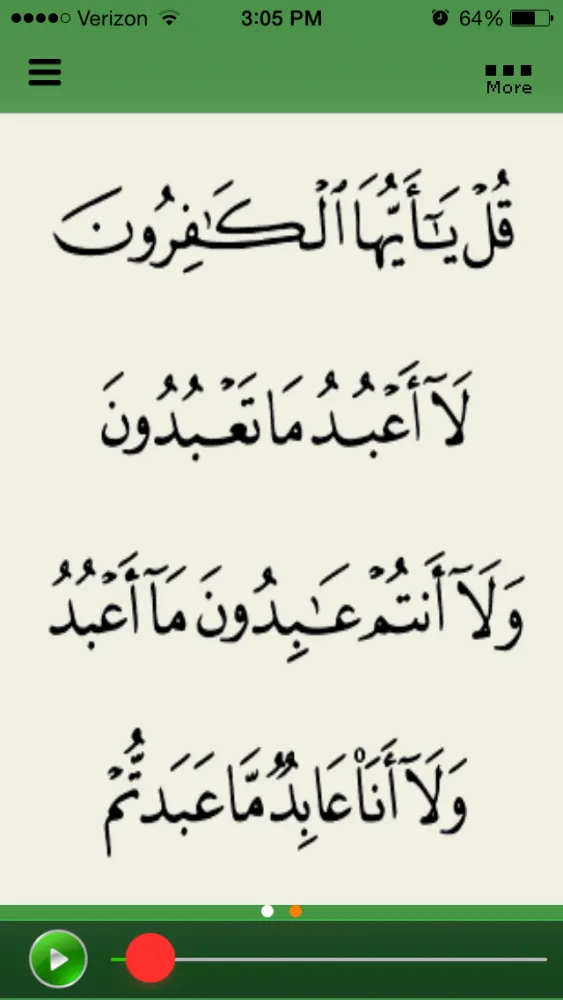 Verizon 3:05 PM 64%
More
قُلۡ يَـٰٓأَيُّهَا ٱلۡكَـٰفِرُونَ
لَآ أَعۡبُدُ مَا تَعۡبُدُونَ
وَلَآ أَنتُمۡ عَـٰبِدُونَ مَآ أَعۡبُدُ
وَلَآ أَنَا۠ عَابِدٌ مَّا عَبَدتُّمۡ